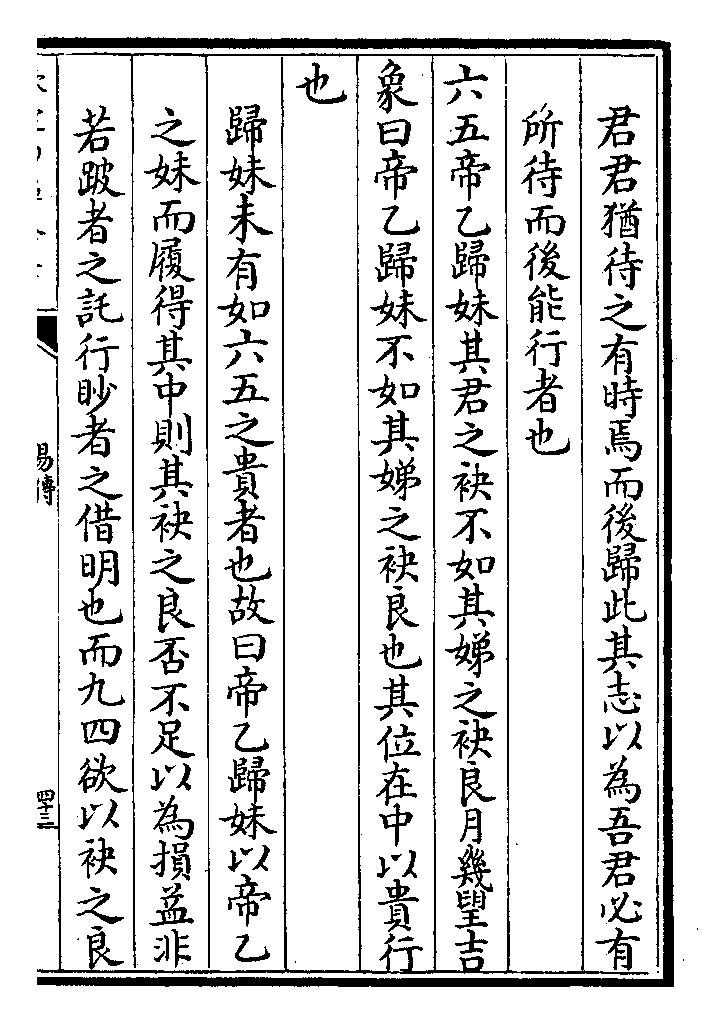 君君猶待之有時焉而後歸此其志以為吾君必有
所待而後能行者也
六五帝乙歸妹其君之袂不如其娣之袂良月幾望吉
象曰帝乙歸妹不如其娣之袂良也其位在中以貴行
也
歸妹未有如六五之貴者也故曰帝乙歸妹以帝乙
之妹而履得其中則其袂之良否不足以為損益非
若跛者之託行眇者之借明也而九四欲以袂之良
易傳
四十三